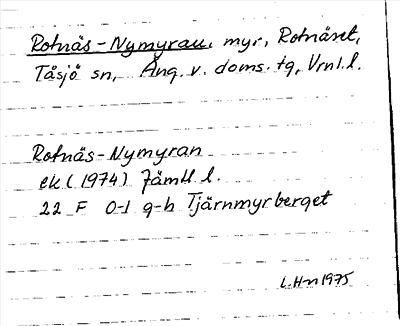 Rotnäs-Nymyran, myr, Rotnäset,
Tåsjö sn, Ång. v. doms. tg, Vrnl. l.
Rotnäs-Nymyran
ek (1974) Jämtl l.
22 F 0-1 g-h Tjärnmyrberget
L.Hn 1975